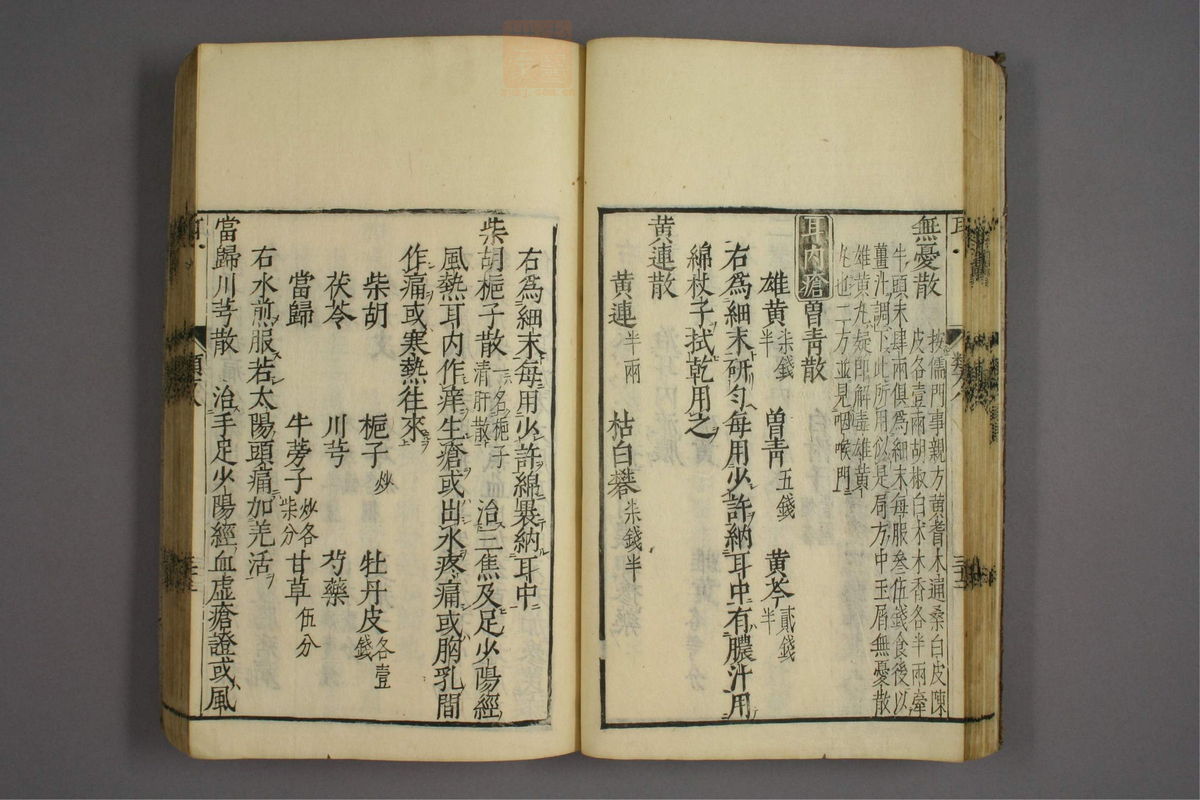 無憂散 按儒門事親方黃耆木通桑白皮陳
皮各壹兩胡椒白朮木香各半兩牽
牛頭末肆兩俱爲細末每服叁伍錢食後以
薑汁調下此所用似是局方中玉屑無憂散
雄黃丸疑即解毒雄黃
丸也二方並見咽喉門
耳內瘡 曾青散
雄黃柒錢半 曾青五錢 黃芩貳錢半
右爲細末研勻每用少許納耳中有膿汁用
綿杖子拭乾用之
黃連散
黃連半兩 枯白礬柒錢半
右爲細末每用少許綿裹納耳中
柴胡梔子散一名梔子清肝散 治三焦及足少陽經
風熱耳內作痒生瘡或出水疼痛或胸乳間
作痛或寒熱往來
柴胡 梔子炒 牡丹皮各壹錢
茯苓 川芎 芍藥
當歸 牛蒡子炒各柒分 甘草伍分
右水煎服若太陽頭痛加羌活
當歸川芎散 治手足少陽經血虛瘡證或風